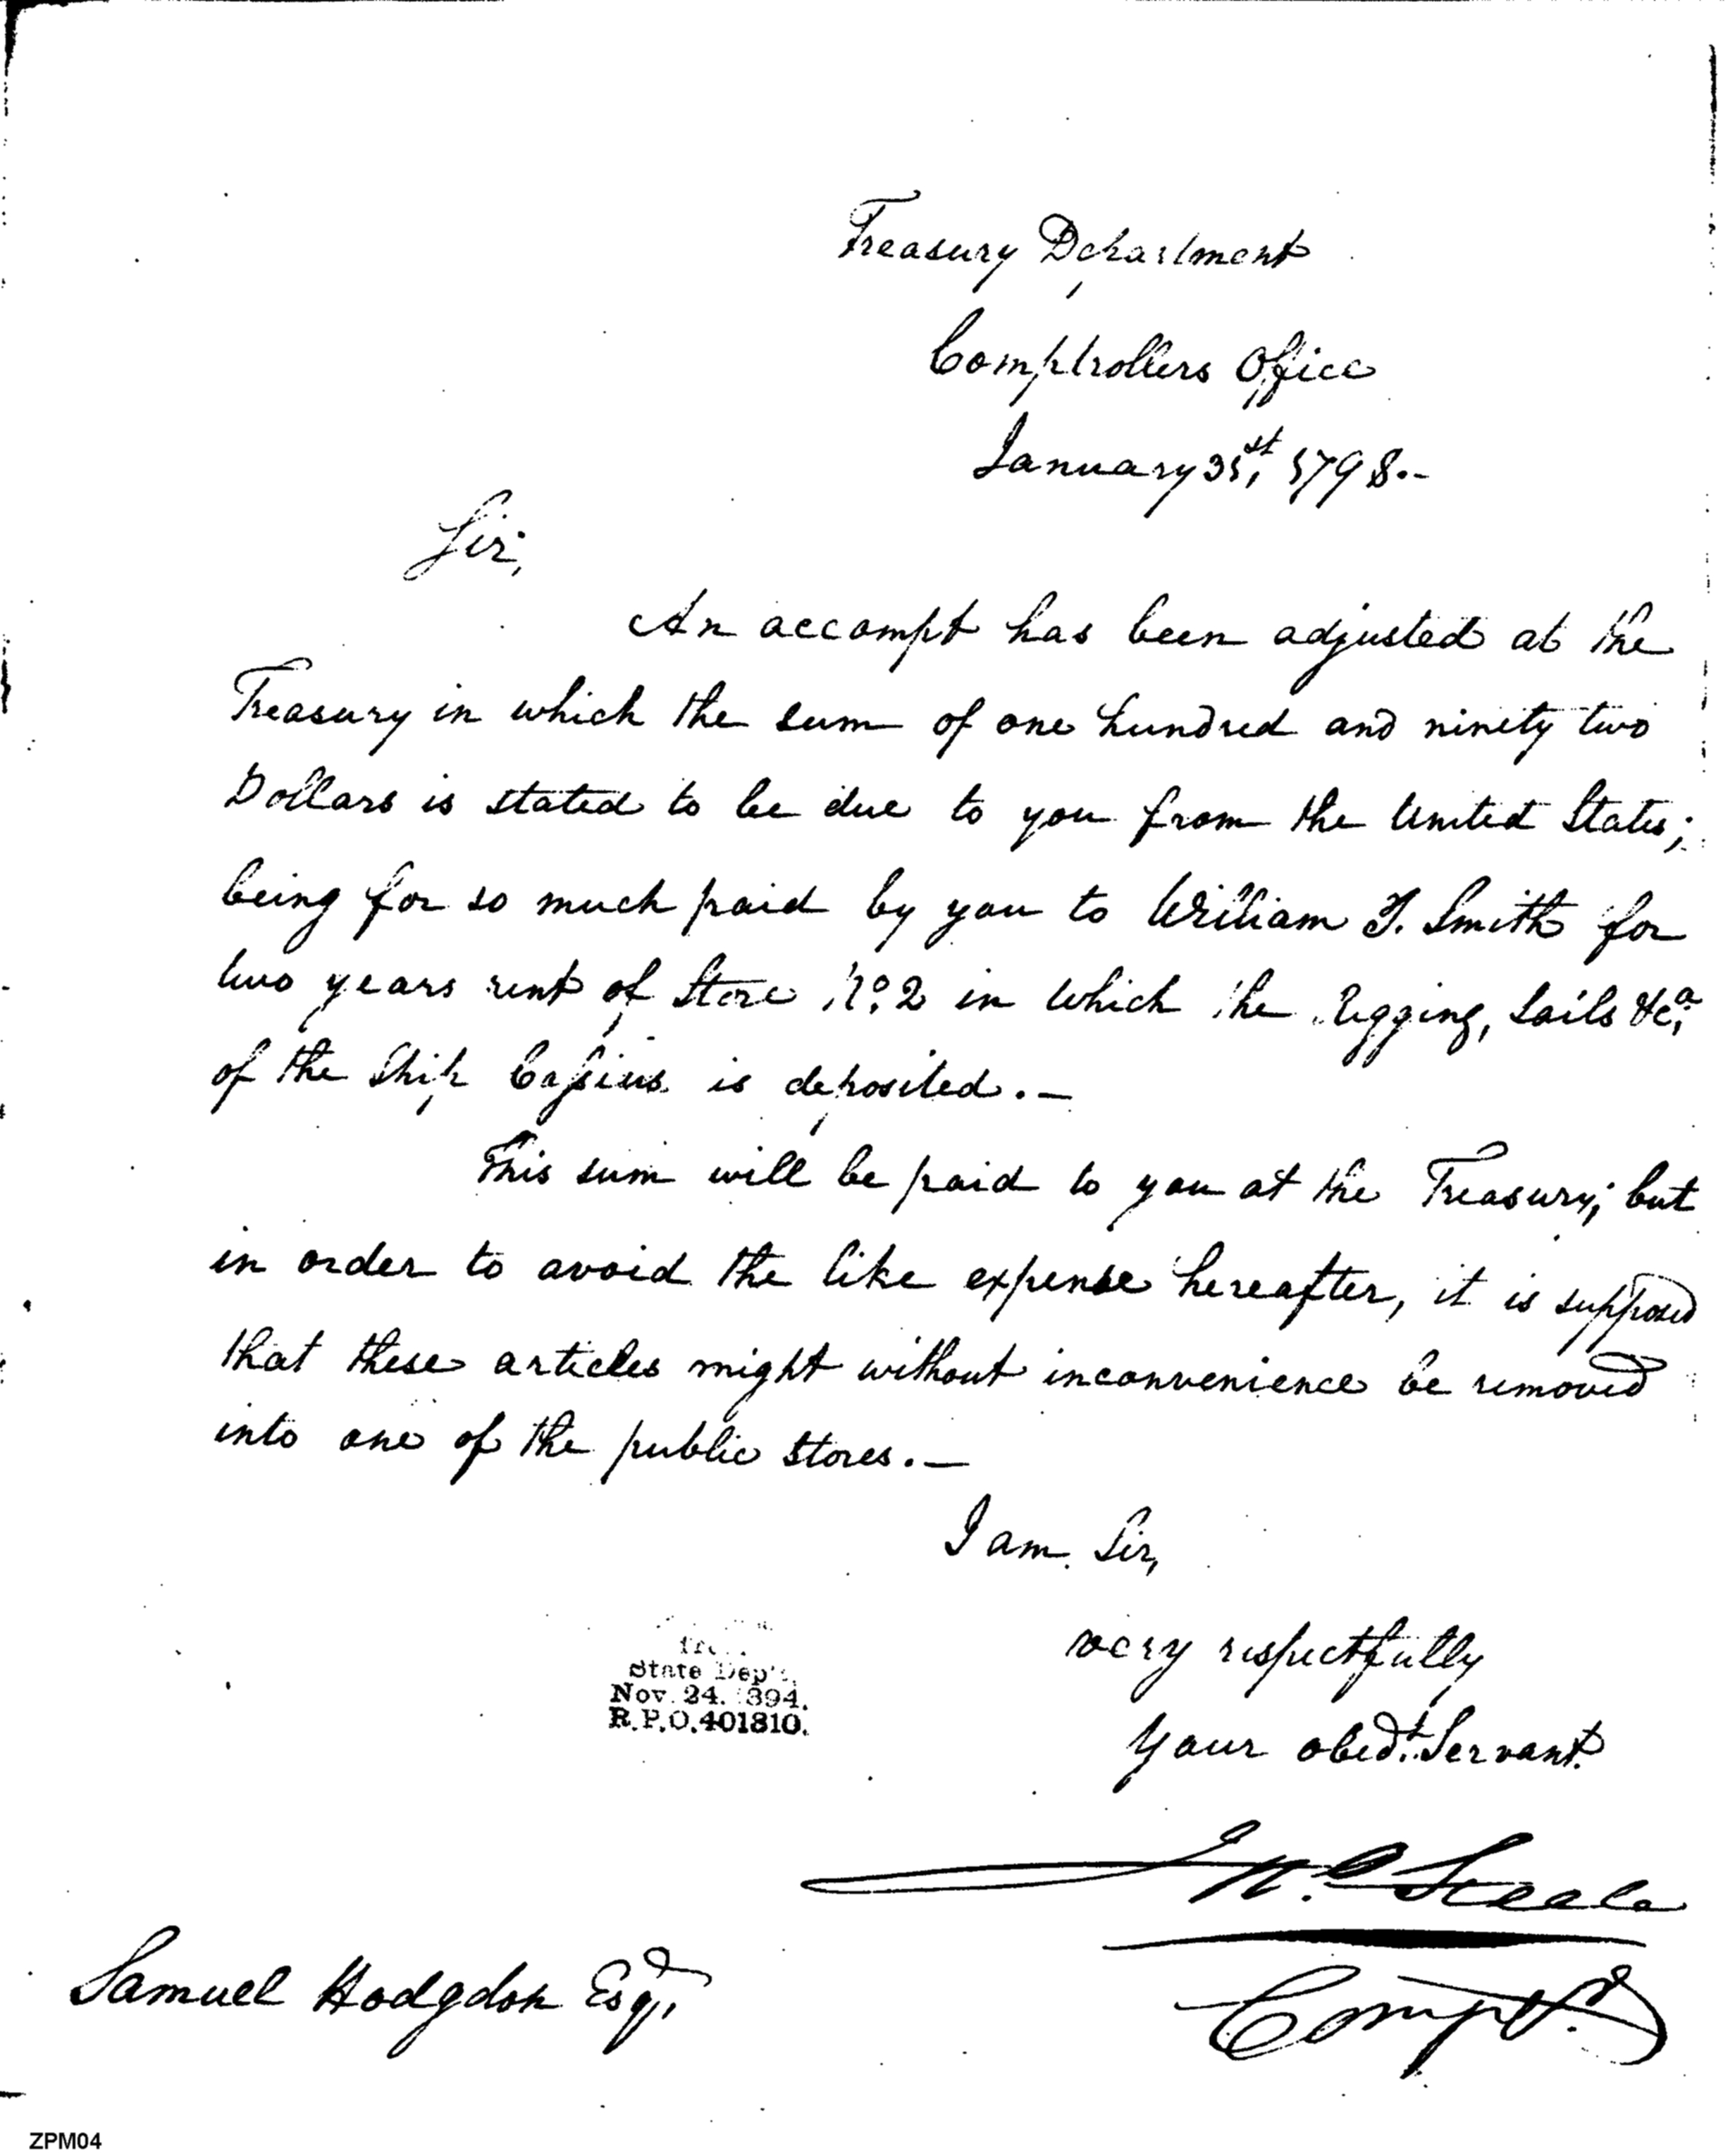 Treasury Department
Comptrollers Office
January 31st, 1798.-
Sir,
An accompt has been adjusted at the
Treasury in which the sum of one hundred and ninety two
Dollars is stated to be due to you from the United States;
being for so much paid by you to William T. Smith for
two years rent of Store No. 2 in which the Rigging, Sails &ca,
of the Ship Cassius is deposited.—
This sum will be paid to you at the Treasury; but
in order to avoid the like expense hereafter, it is supposed
that these articles might without inconvenience be removed
into one of the public Stores.—
I am Sir,
very respectfully
Your obedt. Servant.
Jno. Steele
Comptr.
Samuel Hodgdon Esqr,
State Dep't,
Nov. 24. 1894.
R.P.O. 401310.
ZPM04